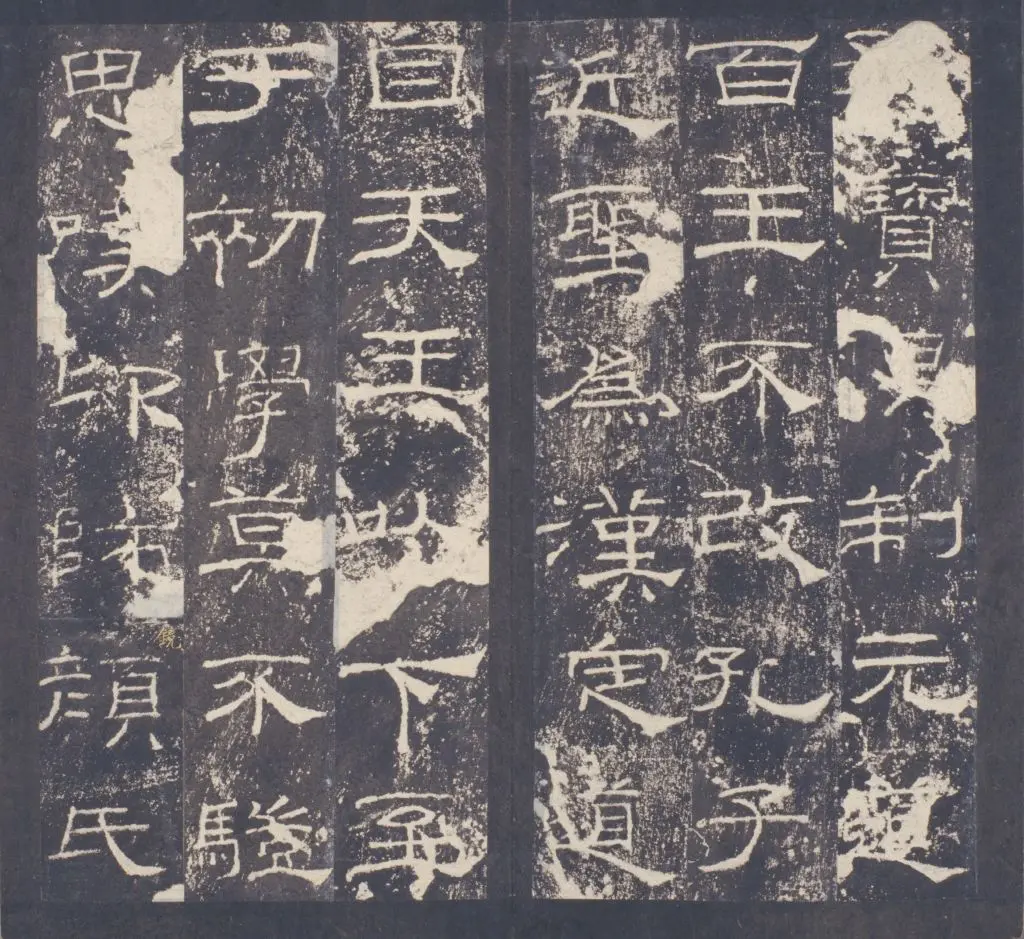 寶俱制元道
百王不改孔子
近聖為漢定道
自天王以下至
于初學莫不驥
思嘆卬師鏡顏氏